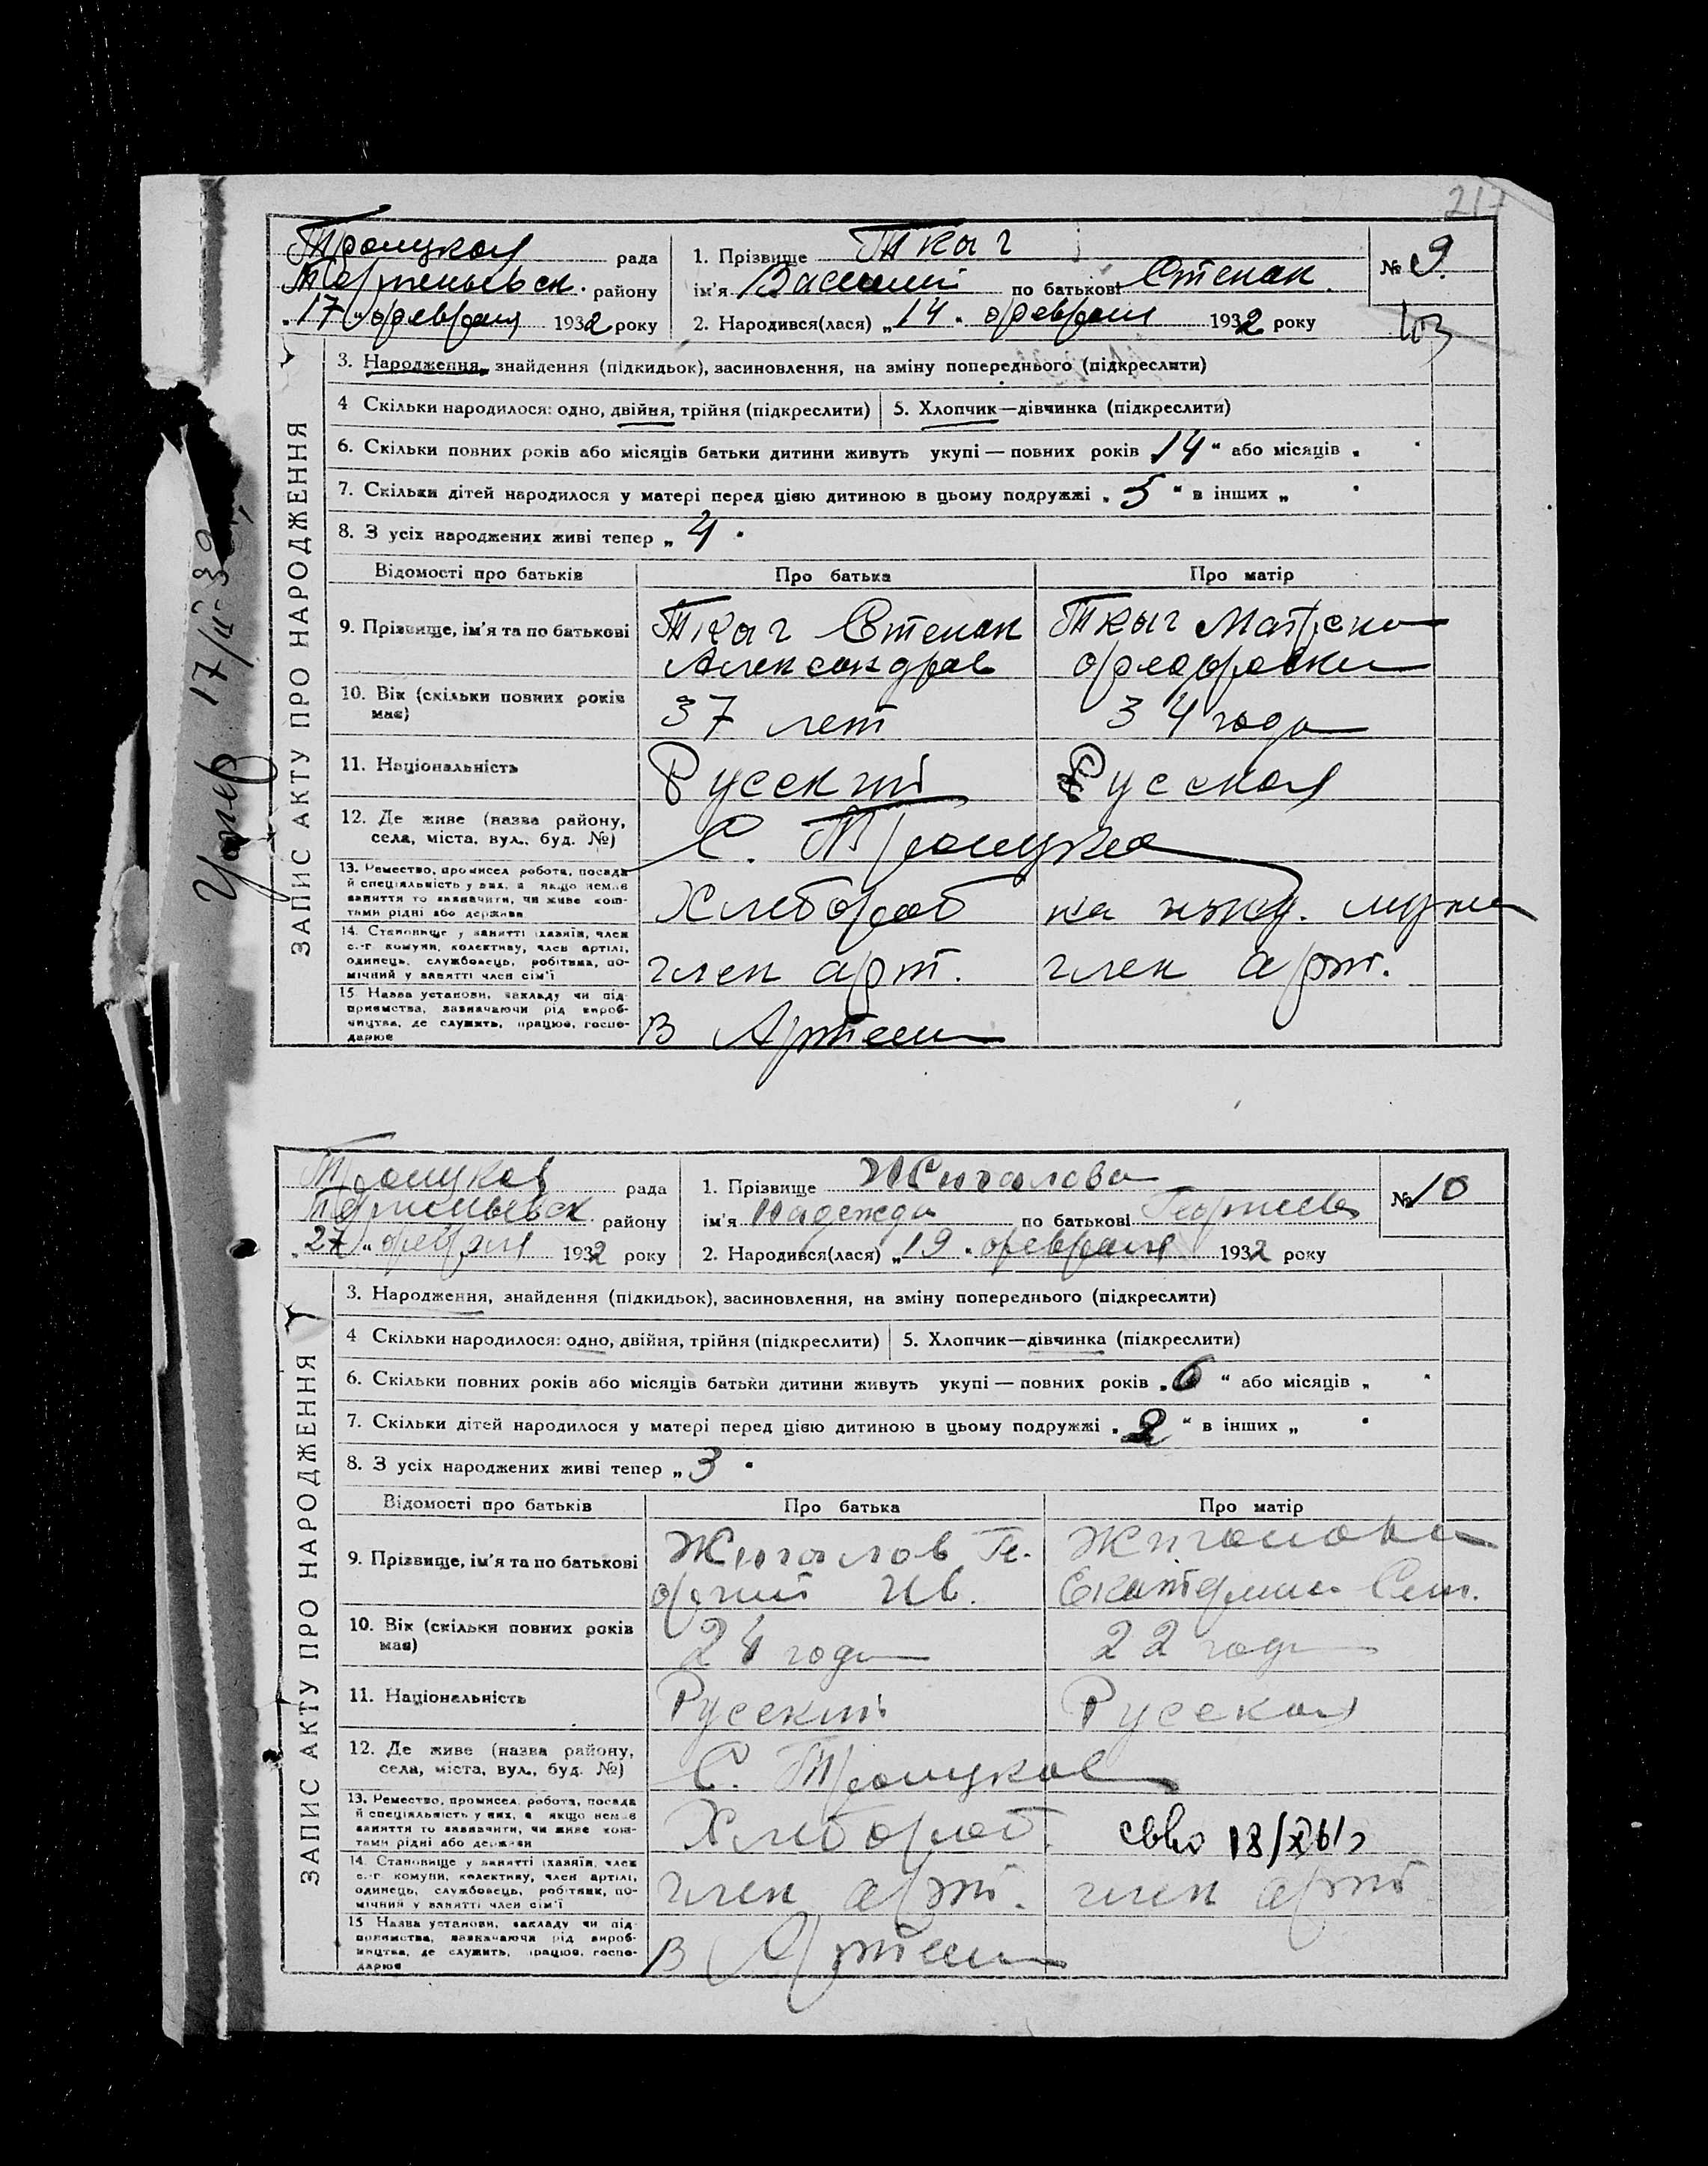 217
Троицкая рада
Терпеньевск. району
„17" февраля 1932 року
1. Прізвище Ткач
ім'я Василий по батькові Степан.
2. Народився(лася) „14" февраля 1932 року
№ 9.
ЗАПИС АКТУ ПРО НАРОДЖЕННЯ
3. Народження, знайдення (підкидьок), засиновлення, на зміну попереднього (підкреслити)
4 Скільки народилося: одно, двійня, трійня (підкреслити) 5. Хлопчик—дівчинка (підкреслити)
6. Скільки повних років або місяців батьки дитини живуть укупі — повних років „14" або місяців „
7. Скільки дітей народилося у матері перед цією дитиною в цьому подружжі „5" в інших „
8. З усіх народжених живі тепер „4"
Відомості про батьків Про батька Про матір
9. Прізвище, ім'я та по батькові Ткач Степан Ткач Матрена
Александров Федоровна
10. Вік (скільки повних років має) 37 лет 34 года
11. Національність Русский Русская
12. Де живе (назва району, села, міста, вул., буд. №) С. Троицкое
13. Ремество, промисел, робота, посада
й спеціяльність у них, а якщо немає
заняття то зазначити, чи живе кош-
тами рідні або держави
Хлебороб на ижд. мужа
14. Становище у занятті (хазяїн, член
с.-г. комуни, колективу, член артілі,
одинець, службовець, робітник, по-
мічний у занятті член сім'ї
член арт. член арт.
15 Назва установи, закладу чи під-
приємства, зазначаючи рід вироб-
ництва, де служить, працює, госпо-
дарює
В Артели
Умер 17/II-39
Троицков рада
Терпеньевск району
„27" февраля 1932 року
1. Прізвище Жигалова
ім'я Надежда по батькові Георгиев
2. Народився(лася) „19" февраля 1932 року
№ 10
ЗАПИС АКТУ ПРО НАРОДЖЕННЯ
3. Народження, знайдення (підкидьок), засиновлення, на зміну попереднього (підкреслити)
4 Скільки народилося: одно, двійня, трійня (підкреслити) 5. Хлопчик—дівчинка (підкреслити)
6. Скільки повних років або місяців батьки дитини живуть укупі — повних років „6" або місяців „
7. Скільки дітей народилося у матері перед цією дитиною в цьому подружжі „2" в інших „
8. З усіх народжених живі тепер „3"
Відомості про батьків Про батька Про матір
9. Прізвище, ім'я та по батькові Жигалов Ге- Жигалова
оргий Ив. Екатерина Сем.
10. Вік (скільки повних років має) 24 года 22 года
11. Національність Русский Русская
12. Де живе (назва району, села, міста, вул., буд. №) С. Троицкое
13. Ремество, промисел, робота, посада
й спеціяльність у них, а якщо немає
заняття то зазначити, чи живе кош-
тами рідні або держави
Хлебороб.
14. Становище у занятті (хазяїн, член
с.-г. комуни, колективу, член артілі,
одинець, службовець, робітник, по-
мічний у занятті член сім'ї
член арт. член арт
15 Назва установи, закладу чи під-
приємства, зазначаючи рід вироб-
ництва, де служить, працює, госпо-
дарює
В Артели